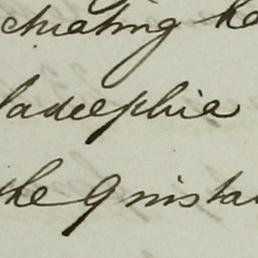 ctuating he
ladelphia
the 9 insta